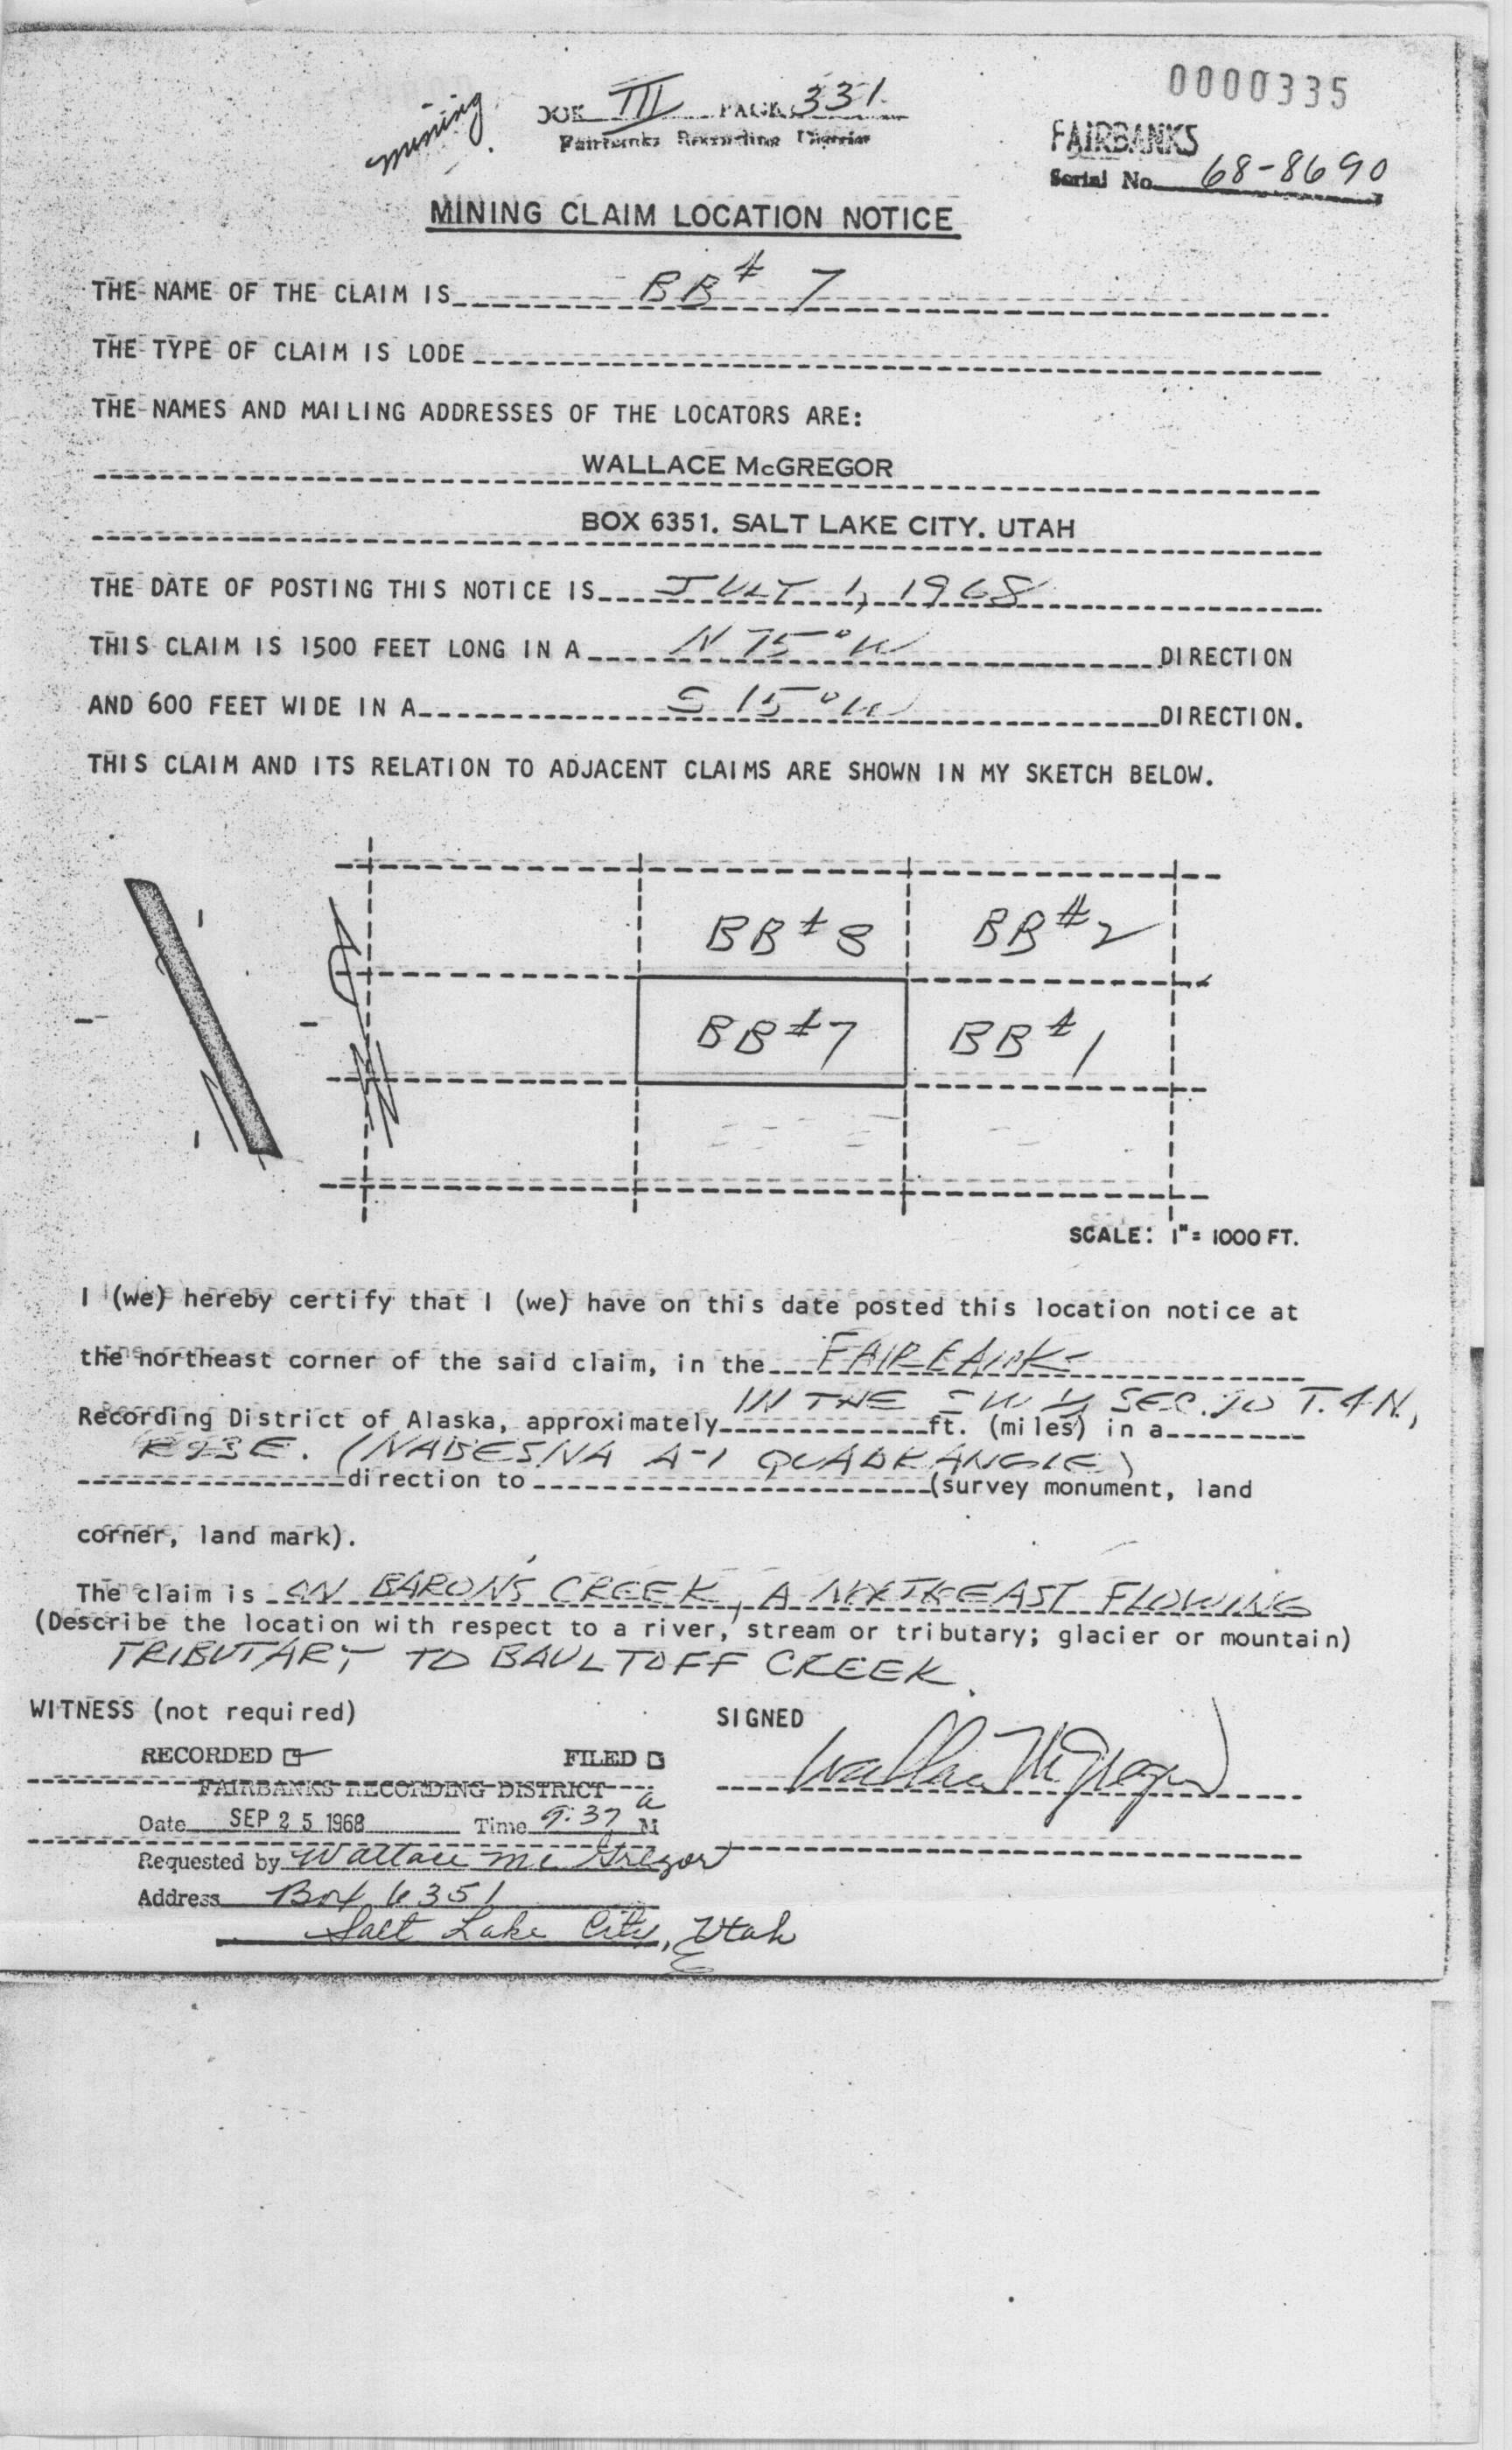 0000335
mining
III PAGE 331
Fairbanks Recording District
FAIRBANKS
Serial No. 68-8690
MINING CLAIM LOCATION NOTICE
THE NAME OF THE CLAIM IS BB# 7
THE TYPE OF CLAIM IS LODE
THE NAMES AND MAILING ADDRESSES OF THE LOCATORS ARE:
WALLACE McGREGOR
BOX 6351. SALT LAKE CITY. UTAH
THE DATE OF POSTING THIS NOTICE IS JULY 1, 1968
THIS CLAIM IS 1500 FEET LONG IN A N 75° W DIRECTION
AND 600 FEET WIDE IN A S 15° W DIRECTION.
THIS CLAIM AND ITS RELATION TO ADJACENT CLAIMS ARE SHOWN IN MY SKETCH BELOW.
BB# 8 BB# 2
BB# 7 BB# 1
N
SCALE: 1"= 1000 FT.
I (we) hereby certify that I (we) have on this date posted this location notice at
the northeast corner of the said claim, in the FAIRBANKS
IN THE SW ¼ SEC. 10 T. 4 N.,
Recording District of Alaska, approximately ft. (miles) in a
R23E. (NABESNA A-1 QUADRANGLE)
direction to (survey monument, land
corner, land mark).
The claim is ON BARONS CREEK, A NORTHEAST FLOWING
(Describe the location with respect to a river, stream or tributary; glacier or mountain)
TRIBUTARY TO BAULTOFF CREEK.
WITNESS (not required) SIGNED
RECORDED FILED
Wallace McGregor
FAIRBANKS RECORDING DISTRICT
Date SEP 25 1968 Time 9:37 a M
Requested by Wallace McGregor
Address Box 6351
Salt Lake City, Utah